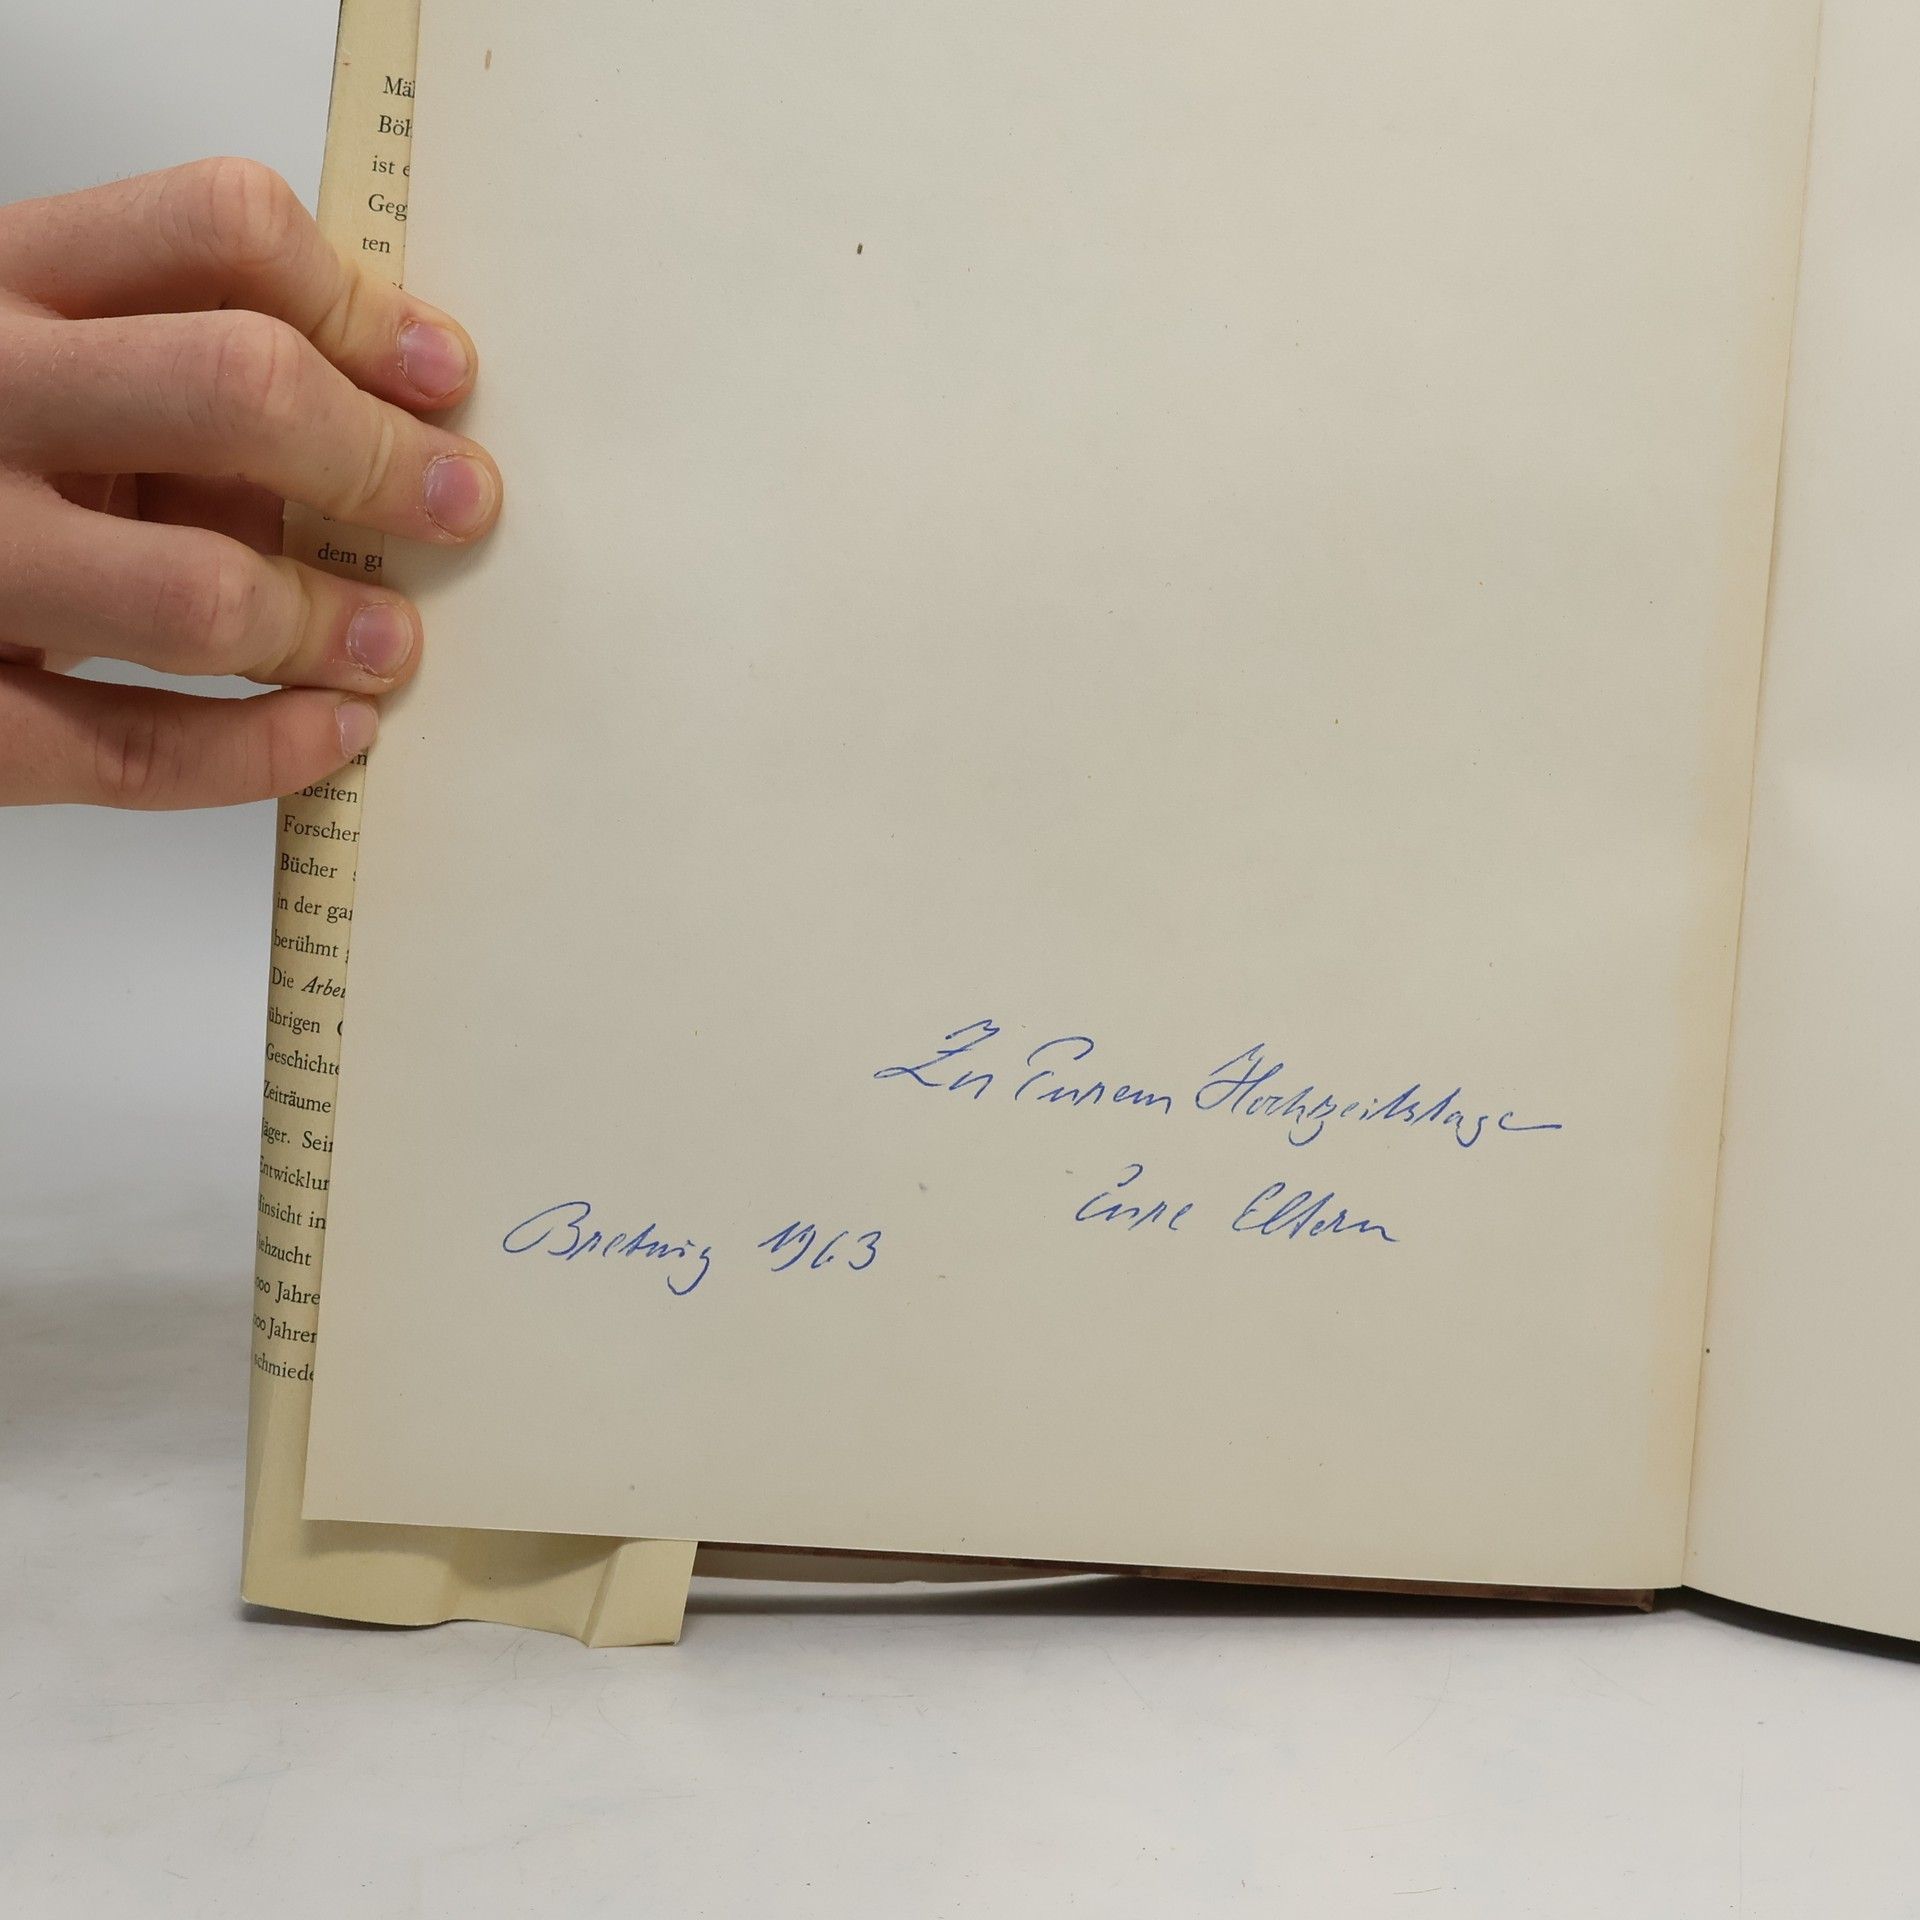 Mäh
Böh
ist e
Geg
ten
dem gr
rbeiten
Forscher
Bücher s
in der gan
berühmt g
Die Arbei
übrigen G
Geschichte
Zeiträume
Jäger. Sein
Entwicklun
Hinsicht in
iehzucht
000 Jahre
000 Jahren
schmiede
Zu Eurem Hochzeitstage
Eure Eltern
Bretnig 1963